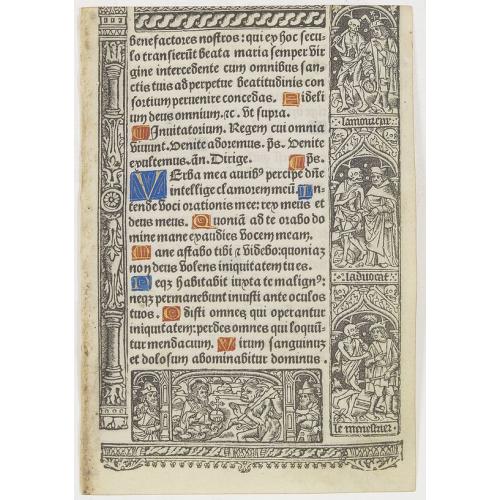 benefactores nostros: qui ex hoc secu
lo transierūt beata maria semper vir
gine intercedente cum omnibus san
ctis tuis ad perpetue beatitudinis con
sortium peruenire concedas. Fideli
um deus omnium.⁊c. vt supra.
Inuitatorium. Regem cui omnia
viuunt. Venite adoremus. p̄s. Venite
exultemus. añ. Dirige. p̄s.
VErba mea aurib⁹ percipe dñe
intellige clamorem meū. In
tende voci orationis mee: rex meus et
deus meus. Quoniā ad te orabo do
mine mane exaudies vocem meam.
Mane astabo tibi ⁊ videbo: quoniaȝ
non deus volens iniquitatem tu es.
Neqȝ habitabit iuxta te malign⁹:
neqȝ permanebunt iniusti ante oculos
tuos. Odisti omnes qui operantur
iniquitatem: perdes omnes qui loquū
tur mendacium. Virum sanguinuȝ
et dolosum abominabitur dominus.
laduocat
le menestrier